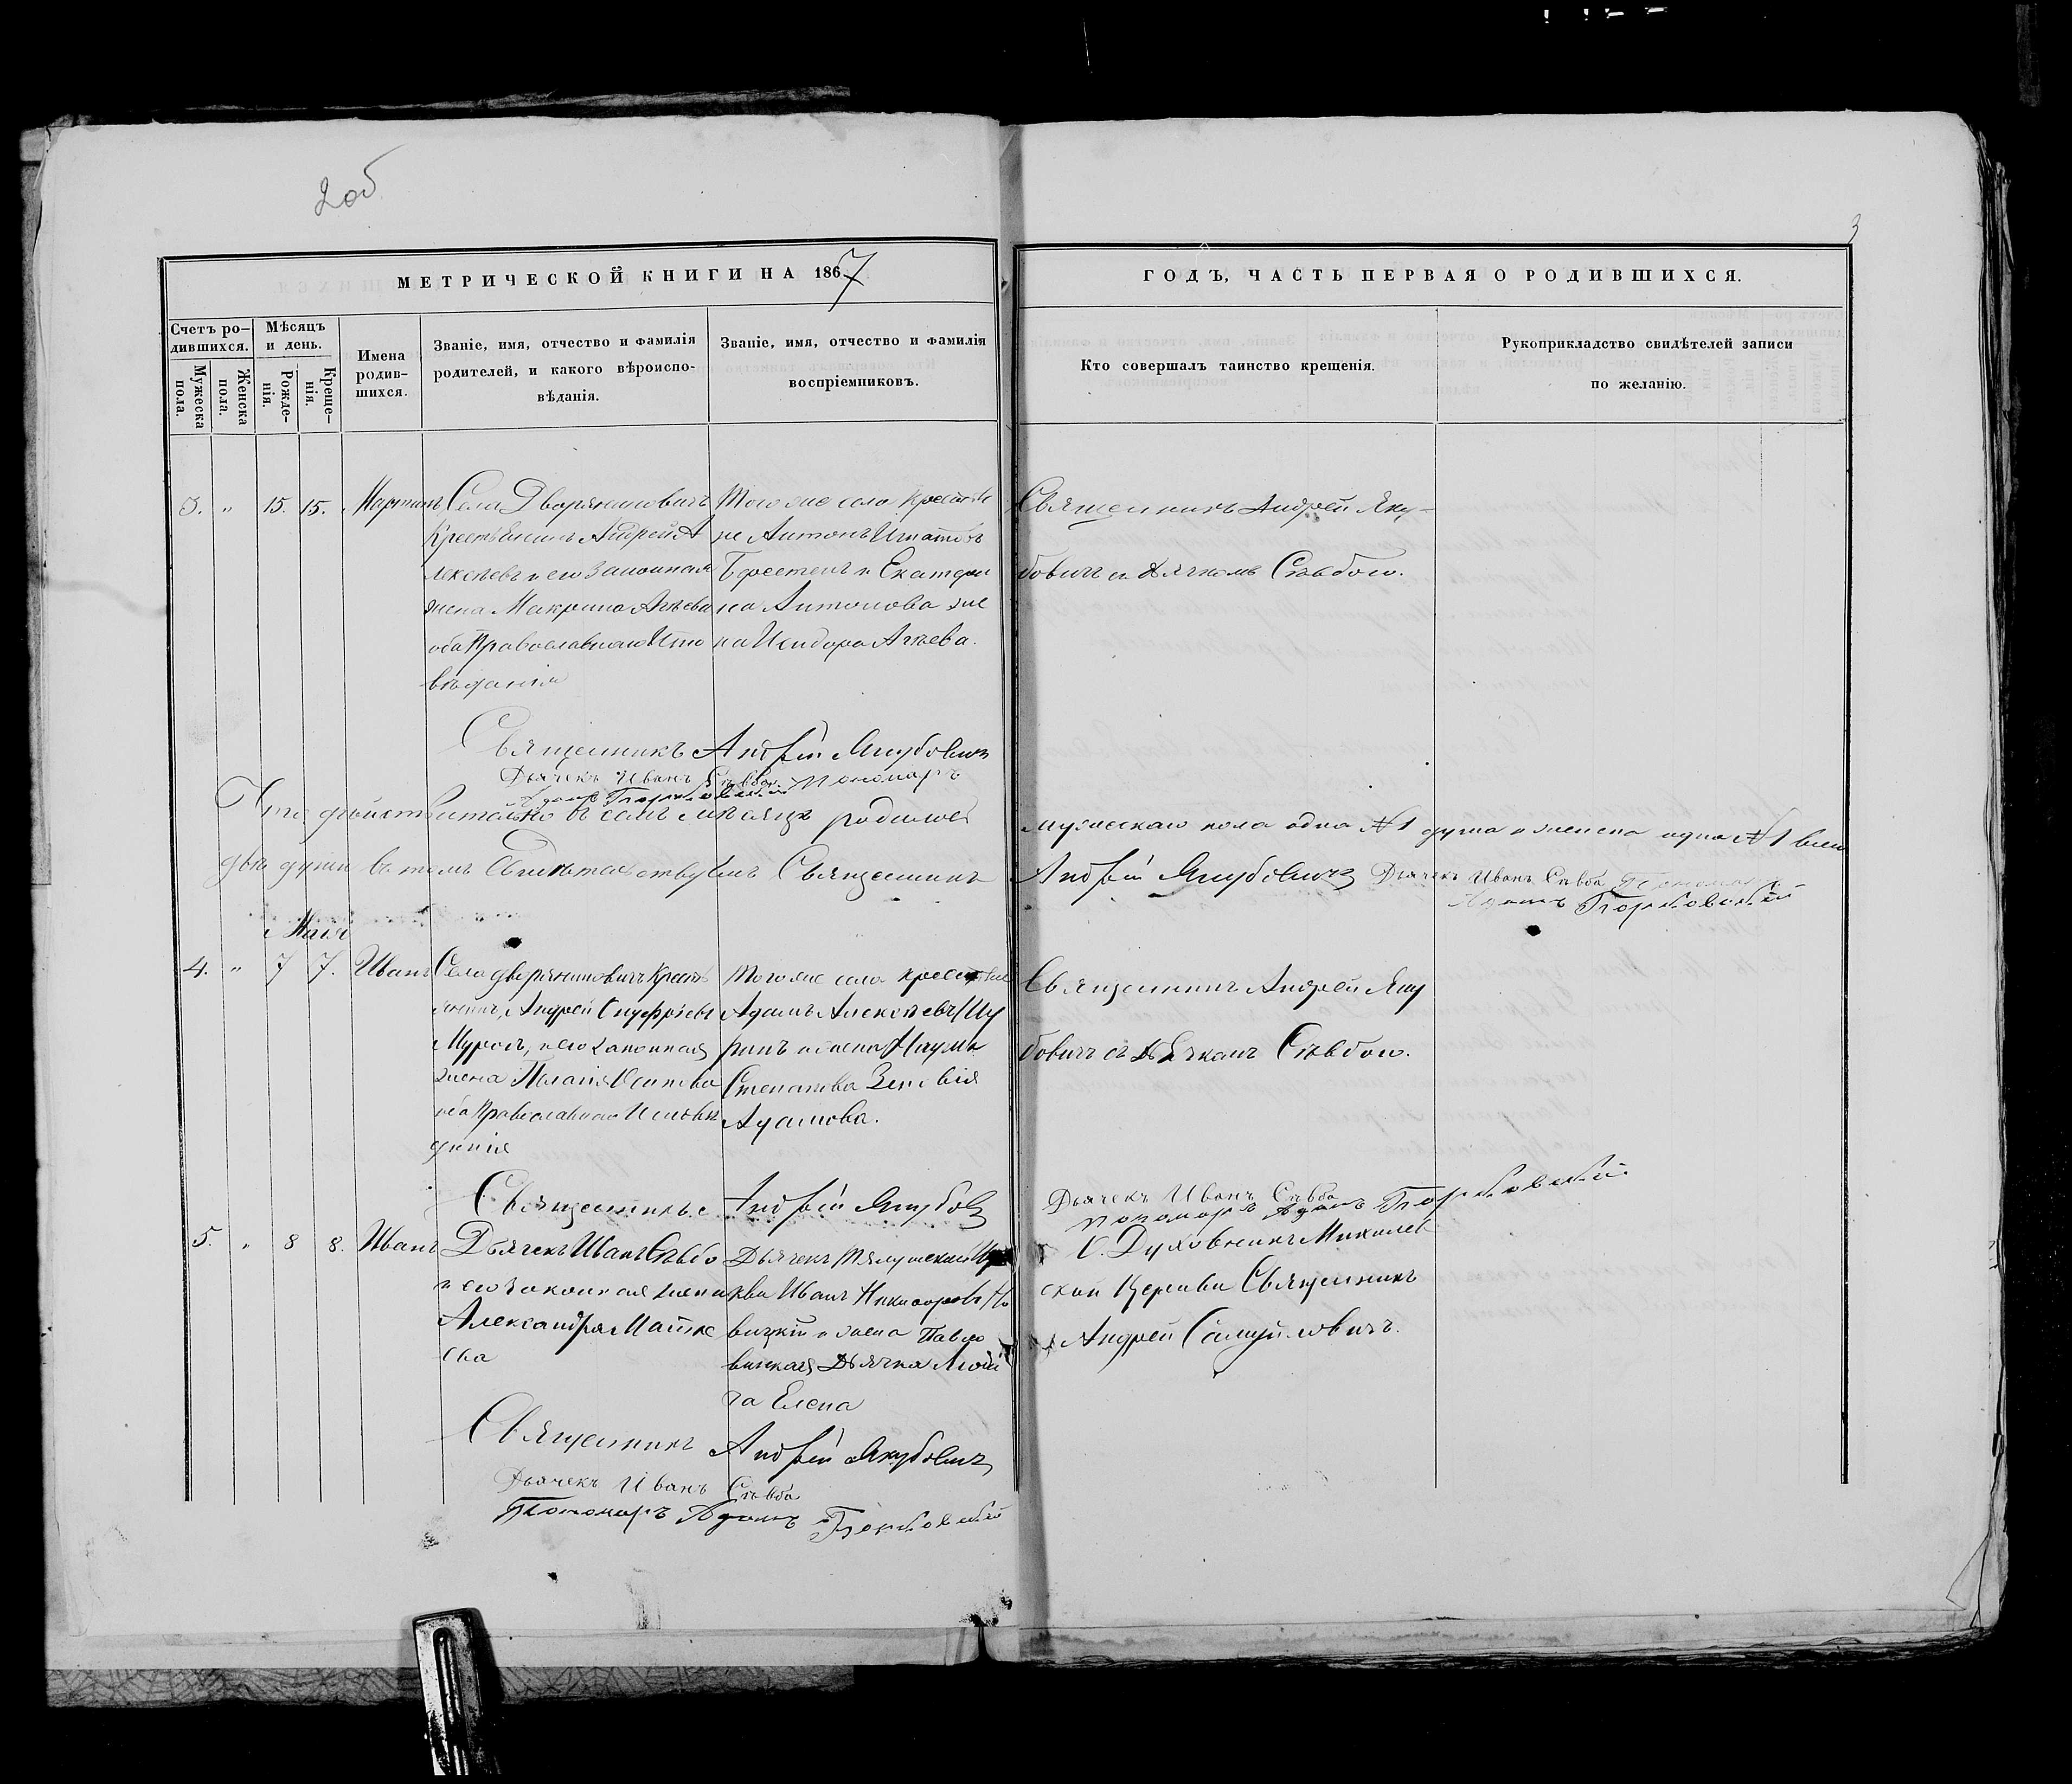 2об
3
МЕТРИЧЕСКОЙ КНИГИ НА 1867
ГОДЪ, ЧАСТЬ ПЕРВАЯ О РОДИВШИХСЯ.
Счетъ ро-
дившихся.
Мужеска
пола.
Женска
пола.
Мѣсяцъ
и день.
Рожде-
нія.
Креще-
нія.
Имена
родив-
шихся.
Званіе, имя, отчество и фамилія
родителей, и какого вѣроиспо-
вѣданія.
Званіе, имя, отчество и фамилія
воспріемниковъ.
Кто совершалъ таинство крещенія.
Рукоприкладство свидѣтелей записи
по желанію.
3. " 15. 15. Мартинъ
Села Дворяниновичъ
Крестьянинъ Андрей А
лексѣевъ и его Законная
жена Макрина Агѣева
оба Православнаго Испо
вѣданія
Того же села крестья
не Антонъ Игнатовъ
и Екатери
на Антонова же
на Исидора Агѣева.
Священникъ Андрей Яку-
бовичъ съ Дьячкомъ Сѣвбою.
Священникъ Андрей Якубовичъ
Дьячекъ Иванъ Сѣвба Пономарь
Адамъ
Что дѣйствительно въ семъ мѣсяцѣ родилось
мужескаго пола одна №1 душа и женска одна №1 всего
двѣ души въ томъ свидѣтельствуемъ Священникъ
Андрей Якубовичъ Дьячекъ Иванъ Сѣвба Пономарь
Адамъ
Маія
4. " 7 7. Иванъ
Села Дворяниновичъ Кресть
янинъ, Андрей Онуфріевъ
и его законная
жена
оба Православнаго Исповѣ
данія
Того же села крестьяне
Адамъ Алексѣевъ
Наума
Степанова Зеновія
Адамова.
Священникъ Андрей Яку
бовичъ съ Дьячкомъ Сѣвбою.
Священникъ Андрей Якубовичъ
Дьячекъ Иванъ Сѣвба
Пономарь Адамъ
5. " 8 8. Иванъ
Дьячекъ Иванъ Сѣвба
и его Законная жена
Александра Матвѣе
ева
Дьячекъ
кви Иванъ Никифоровъ Но
вицкій и жена
Дьячка
Елена
Духовникъ
ской Церкви Священникъ
Андрей Самуйловичъ.
Священникъ Андрей Якубовичъ
Дьячекъ Иванъ Сѣвба
Пономарь Адамъ